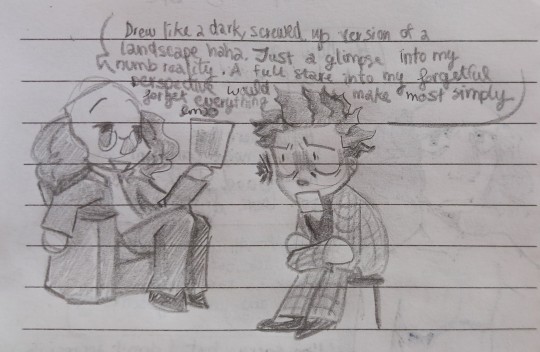 Drew like a dark, screwed up version of a
landscape haha. Just a glimpse into my
numb reality. A full stare into my forgetful
perspective would make most simply
forget everything
lmao